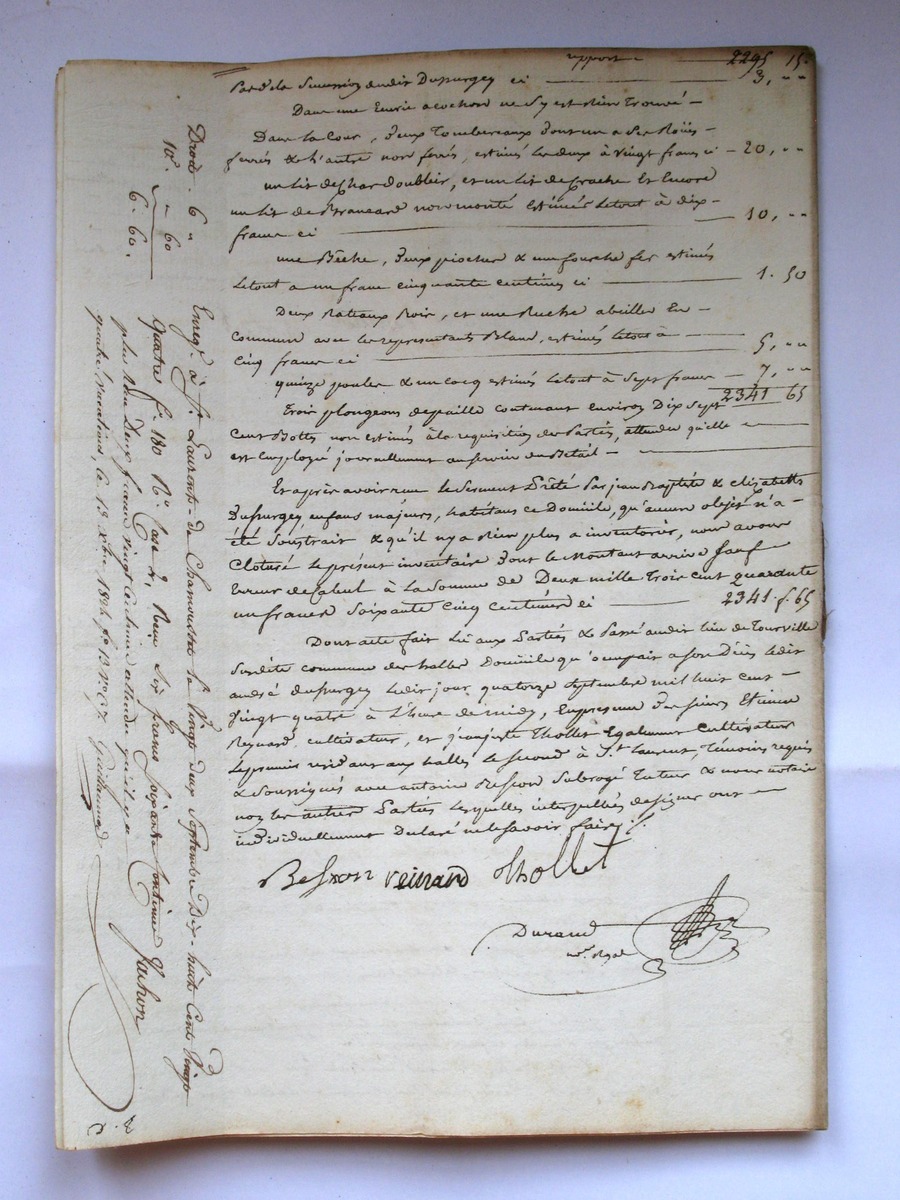 report 2295 15.
par d. la Succession dudit Dupurgey ci 3, " "
Dans une Ecurie a cochon ne s'y est Rien Trouvé —
Dans la Cour, Deux Tombereaux Dont un a Ses Roües —
ferrés & l'autre non ferrés, estimés les deux à vingt francs ci — 20, " "
un lit de Char doubleir, et un lit de Crache Et Encore
un lit de Brancard non monté Estimés le tout à dix —
francs ci 10, " "
une Bêche, Deux pioches & une fourche fer estimés
le tout a un franc cinquante centimes ci 1. 50
Deux Rateaux Bois, et une Ruche abeille En —
commun avec les representants Blanc, estimés le tout à —
cinq francs ci 5, " "
quinze poules & un cocq estimés le tout à Sept francs — 7, " "
2341 65
Trois plongeons de paille contenant environ Dix Sept
Cent Bottes non estimés à la requisition des Parties, attendu qu'elle —
est Employé journellement au service du Bétail —
Et après avoir reçu le Serment Prêté par jean Baptiste & elizabeth
Dupurgey, enfans majeurs, habitans ce Domicile, qu'aucun objet n'a —
été Soustrait & qu'il n'y a Rien plus a inventorier, nous avons
Cloturé le présent inventaire Dont le Montant arrive Sauf
Erreur de Calcul à la Somme de Deux mille Trois cent quarante
un francs Soixante Cinq Centimes ci 2341 f. 65
Dont acte fait Lû aux Parties & Passé audit lieu de Tourville
Susdite commune des halles Domicile qu'occupait a son Décès ledit
andré Dupurgey ledit jour, quatorze Septembre mil huit cent —
Vingt quatre à L'heure de midy, En presence Des sieurs Etienne
Reynard cultivateur, et jean Thollet Egalement Cultivateur
le premier residant aux halles le second à St. Laurent, temoins requis
& Soussignés avec antoine Besson Subrogé Tuteur & nous notaire
non les autres Parties lesquelles interpellées de signer ont —
individuellement Déclaré ne le savoir faire ./.
Besson reinard thollet
Durand
nre. Royal
Droit 6 "
10e. " 60
6. 60.
Enregé. à St. Laurent de Chamousset le vingt deux Septembre Dix huit Cent Vingt
quatre fo. 180 Ro. case 2, Reçu Six francs soixante Centimes
plus Reçu Deux francs vingt centimes attendu qu'il y a
quatre vacations, le 13 Xbre 1824 fo 13 Vo C 7. Guillaumet
Vachon